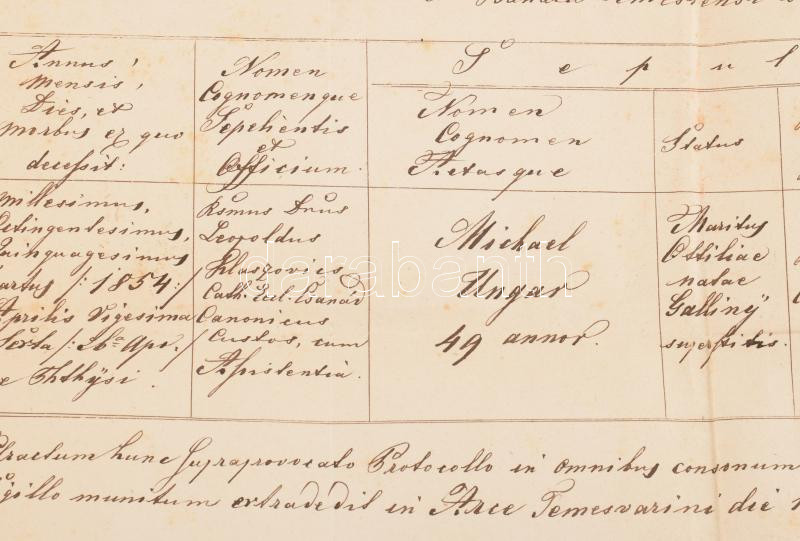 S e p u l
Annus,
mensis,
Dies, et
morbus ex quo
decessit:
Nomen
Cognomenque
Sepelientis
et
Officium.
Nomen
Cognomen
Aetasque
Status
millesimus,
ctingentesimus,
quinquagesimus
artus /:1854:/
Aprilis Vigesima
Sexta /: 26a Apr:/
e Phthysi.
Rsmus Dnus
Leopoldus
Hlaszovics
Cath. Eccl. Csanád
Canonicus
Custos, cum
Assistentia.
Michael
Ungar
49 annor.
Maritus
Ottiliae
natae
Galliny
superstitis.
tractum hunc supraprovocato Protocollo in omnibus consonum
igillo munitum extradedit in Arce Temesvarini die
darabanth